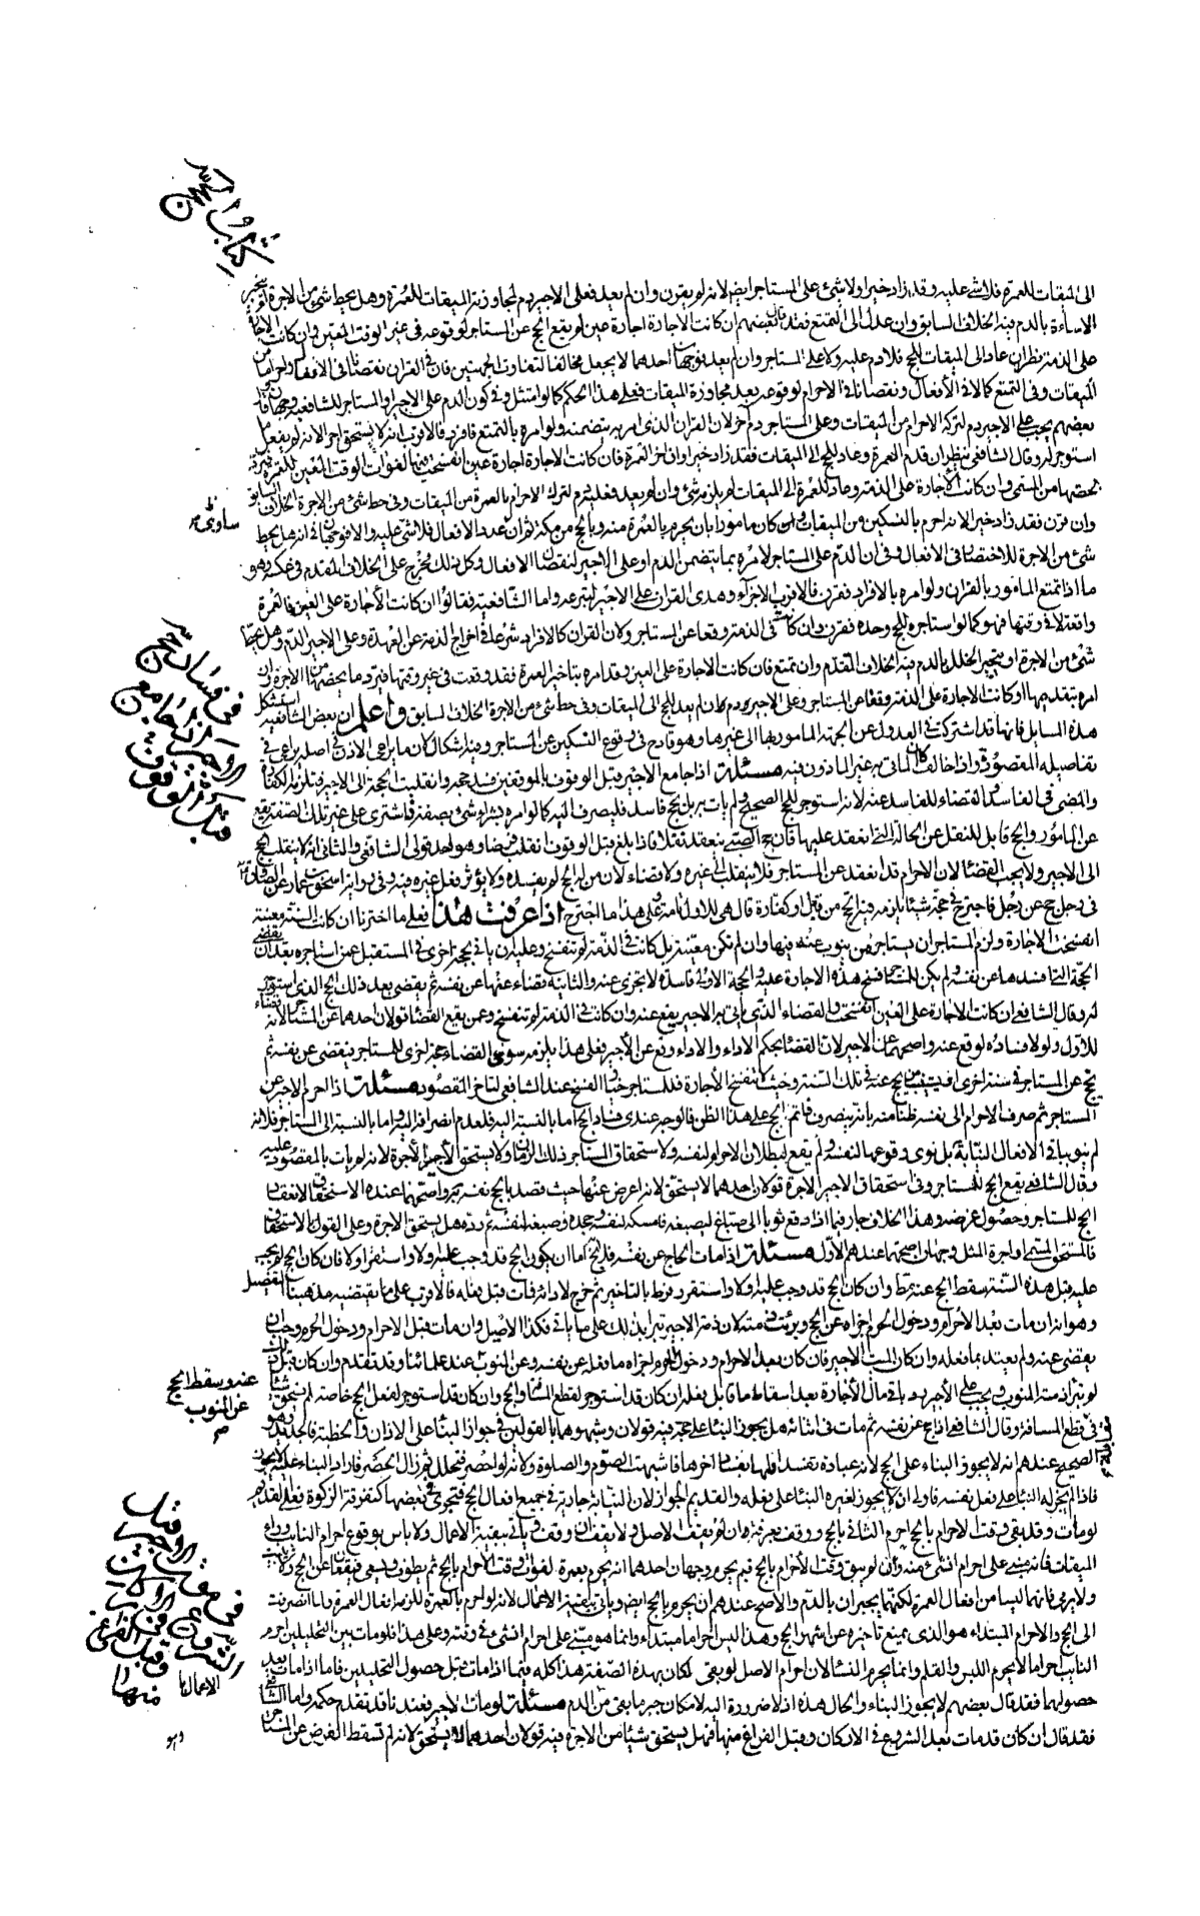 الى الميقات للعمرة فلا شئ عليه وقد زاد خيرا ولا شئ على المستاجر ايضا لانه لم يقرن وان لم يعد فعلى الاجير دم لمجاوزة الميقات للعمرة وهل يحط شئ من الاجرة او يتخير
الاساءة بالدم فيه الخلاف السابق وان عدل الى التمتع فقد قال بعضهم ان كانت الاجارة اجارة عين لم يقع الحج عن المستاجر لوقوعه في غير الوقت المعين وان كانت الاجارة
على الذمة نظر ان عاد الى الميقات للحج فلا دم عليه ولا على المستاجر وان لم يعد فوجهان احدهما لا يجعل مخالفا لتفاوت الجهتين فان في القران نقصانا في الافعال واحراما من
الميقات وفي التمتع كمالا في الأفعال ونقصانا في الاحرام لوقوعه بعد مجاوزة الميقات فعلى هذا الحكم كما لو امتثل وفي كون الدم على الاجير او المستاجر للشافعية وجهان قال
بعضهم يجب على الاجير دم لتركه الاحرام من الميقات وعلى المستاجر دم آخر لان القران الذي امر به يتضمنه ولو امره بالتمتع فافرد فالاقرب انه لا يستحق اجرا لانه لم يفعل ما
استوجر له وقال الشافعي ينظر ان قدم العمرة وعاد للحج الى الميقات فقد زاد خيرا وان اخر العمرة فان كانت الاجارة اجارة عين انفسخت فيها لفوات الوقت المعين للعمرة فيرد
بحصتها من المسمى وان كانت الأجارة على الذمة وعاد للعمرة الى الميقات لم يلزمه شئ وان لم يعد فعليه دم لترك الاحرام بالعمرة من الميقات وفي حط شئ من الاجرة الخلاف السابق
وان قرن فقد زاد خيرا لانه احرم بالنسكين من الميقات وان كان مامورا بان يحرم بالعمرة منه وبالحج من مكة ثم ان عدد الافعال فلا شئ عليه والا فوجهان في انه هل يحط
شئ من الاجرة للاختصار في الافعال وفي ان الدم على المستاجر لامره بما يتضمن الدم او على الاجير لنقصان الافعال وكل ذلك مخرج على الخلاف المقدم في عكسه وهو
ما اذا تمتع المامور بالقران ولو امره بالافراد فقرن فالاقرب الاجزاء وهدى القران على الاجير لتبرعه واما الشافعية فقالوا ان كانت الأجارة على العين فالعمرة
واقعة لا في وقتها فهو كما لو استاجره للحج وحده فقرن وان كانت في الذمة وقعا عن المستاجر ولان القران كالافراد شرعا في اخراج الذمة عن العهدة وعلى الاجير الدم وهل يحط
شئ من الاجرة او يتجبر الخلل بالدم فيه الخلاف المتقدم وان تمتع فان كانت الاجارة على العين وقد امره بتاخير العمرة فقد وقعت في غير وقتها فيرد ما يخصها من الاجرة وان
امره بتقديمها او كانت الاجارة على الذمة وقعا عن المستاجر وعلى الاجير دم ان لم يعد للحج الى الميقات وفي حط شئ من الاجرة الخلاف السابق واعلم ان بعض الشافعية استشكل
هذه المسايل فانها قد اشتركت في العدول عن الجهة المامور بها الى غيرها وهو قادح في وقوع النسكين عن المستاجر وفيه اشكال لان ما يراعى الاذن في اصله يراعى في
تفاصيله المقصودة واذا خالف كان الماتي به غير الماذون فيه مسئلة اذا جامع الاجير قبل الوقوف بالموقفين فسد حجه وانقلبت الحجة الى الاجير فتلزمه الكفارة
والمضى في الفاسد والقضاء للفاسد عنه لانه استوجر للحج الصحيح ولم يات به بل بحج فاسد فليصرف اليه كما لو امره بشراء شئ بصفة فاشترى على غير تلك الصفة يقع
عن المامور والحج قابل للنقل عن الحالة التي انعقد عليها فان حج الصبي ينعقد نفلا فاذا بلغ قبل الوقوف انقلب فرضا وهو احد قولي الشافعي والثاني انه لا ينقلب الحج
الى الاجير ولا يجب القضا لان الاحرام قد انعقد عن المستاجر فلا ينقلب الى غيره ولا قضاء لان من له الحج لم يفسده ولا يؤثر فعل غيره فيه وفي رواية اسحق بن عمار عن الصادق ع
في رجل حج عن رجل فاجترح في حجه شيئا يلزمه فيه الحج من قابل او كفارة قال هي للاول تامة وعلى هذا ما اجترح اذا عرفت هذا فعلى ما اخترنا ان كانت السنة معينة
انفسخت الاجارة ولزم المستاجر ان يستاجر من ينوب عنه فيها وان لم تكن معينة بل كانت في الذمة لم تنفسخ وعليه ان ياتي بحجة اخرى في المستقبل عمن استاجره بعد ان يقضى
الحجة التي افسدها عن نفسه ولم يكن للمستاجر فسخ هذه الاجارة عليه والحجة الاولى فاسدة لا تجزى عنه والثانية قضاء عنها عن نفسه ثم يقضى بعد ذلك الحج الذي استوجر
له وقال الشافعي ان كانت الاجارة على العين انفسخت والقضاء الذي ياتي به الاجير يقع عنه وان كانت في الذمة لم تنفسخ وعمن يقع القضا قولان احدهما عن المستاجر لانه قضاء
للاول ولولا فساده لوقع عنه واصحهما عن الاجير لان القضا بحكم الاداء والاداء وقع عن الأجير فعلى هذا يلزمه سوى القضاء حجة اخرى للمستاجر فيقضى عن نفسه ثم
يحج عن المستاجر في سنة اخرى او يستنيب من يحج عنه في تلك السنة وحيث لا تنفسخ الأجارة فللمستاجر خيار الفسخ عند الشافعي لتاخر المقصود مسئلة اذا احرم الاجير عن
المستاجر ثم صرف الاحرام الى نفسه ظنا منه بانه ينصرف فاتم الحج على هذا الظن فالوجه عندي فساد الحج اما بالنسبة اليه فلعدم انصرافه اليه واما بالنسبة الى المستاجر فلانه
لم ينو باقي الافعال لنيابة بل نوى وقوعها لنفسه ولم يقع لبطلان الاحرام لنفسه ولاستحقاق المستاجر ذلك الزمان ولا يستحق الأجير الأجرة لانه لم يات بالمقصود عليه
وقال الشافعي يقع الحج للمستاجر وفي استحقاق الاجير الاجرة قولان احدهما لا يستحق لانه اعرض عنها حيث قصد بالحج نفسه واصحهما عنده الاستحقاق لانعقاد
الحج للمستاجر وحصول غرضه وهذا الخلاف جار فيما اذا دفع ثوبا الى صباغ ليصبغه فامسكه لنفسه وجحده وصبغه لنفسه ثم رده هل يستحق الاجرة وعلى القول بالاستحقاق
فالمستحق المسمى او اجرة المثل وجهان اصحهما عندهم الاول مسئلة اذا مات الحاج عن نفسه فلا يخ اما ان يكون الحج قد وجب عليه اولا واستقر او لا فان كان الحج لم يجب
عليه قبل هذه السنة سقط الحج عنه بموته وان كان الحج قد وجب عليه اولا واستقر وفرط بالتاخير ثم خرج لادائه فمات قبل فعاله فالاقرب على ما يقتضيه مذهبنا التفصيل
وهو انه ان مات بعد الأحرام ودخول الحرم اجزاه عن الحج وبرئت ذمته لان ذمة الاجير تبرا بذلك على ما ياتي فكذا الاصيل وان مات قبل الاحرام ودخول الحرم وجب ان
يقضى عنه ولم يعتد بما فعله وان كان الميت الاجير فان كان بعد الاحرام ودخول الحرم اجزاه ما فعل عن نفسه وعن المنوب عند علمائنا وقد تقدم وان كان قبل ذلك
لم تبرأ ذمة المنوب ويجب على الأجير رد باقي مال الأجارة بعد اسقاط ما قابل فعله ان كان قد استوجر لقطع المسافة والحج وان كان قد استوجر لفعل الحج خاصة لم يستحق شيئا
في قطع المسافة وقال الشافعي اذا حج عن نفسه ثم مات في اثنائه هل يجوز البناء على حجه فيه قولان وشبهوهما بالقولين في جواز البناء على الاذان والخطبة فالجديد وهو
الصحيح عندهم انه لا يجوز البناء على الحج لانه عبادة تفسد اولها بفساد آخرها فاشبهت الصوم والصلوة ولانه لو احصر فتحلل ثم زال الحصر فاراد البناء عليه لا يجوز
فاذا لم يجز له البناء على فعل نفسه فاولى ان لا يجوز لغيره البناء على فعله والقديم الجواز لان النيابة جارية في جميع افعال الحج فتجرى في بعضها كتفرقة الزكوة فعلى القديم
لو مات وقد بقى وقت الاحرام بالحج احرم النائب بالحج ووقف بعرفة ان لم يقف الاصل ولا يقف ان وقف وياتي ببقية الاعمال ولا باس بوقوع احرام النايب وراء
الميقات فانه مبني على احرام انشئ منه وان لم يبق وقت الأحرام بالحج فبم يحرم وجهان احدهما انه يحرم بعمرة لفوات وقت الأحرام بالحج ثم يطوف ويسعى فيقعان عن الحج ولا يبيت
ولا يرمي فانهما ليسا من افعال العمرة لكنهما يجبران بالدم والاصح عندهم ان يحرم بالحج ايضا وياتي ببقية الاعمال لانه لو احرم بالعمرة للزمه افعال العمرة ولما انصرفت
الى الحج والاحرام المبتداء هو الذي يمتنع تاخيره عن اشهر الحج وهذا ليس احراما مبتداء وانما هو مبني على احرام انشئ في وقته وعلى هذا فلو مات بين التحليلين احرم
النايب احراما لا يحرم اللبس والقلم وانما يحرم النساء لان احرام الاصل لو بقى لكان بهذه الصفة هذا كله فيما اذا مات قبل حصول التحليلين فاما اذا مات بعد
حصولهما فقد قال بعضهم لا يجوز البناء والحال هذه اذ لا ضرورة اليه لامكان جبر ما بقى من الدم مسئلة لو مات الاجير فعندنا قد تقدم حكمه واما الشافعي
فقد قال ان كان قد مات بعد الشروع في الاركان وقبل الفراغ منها فهل يستحق شيئا من الاجرة فيه قولان احدهما لا يستحق لانه لم يسقط الفرض عن المستاجر
عنه وسقط الحج
عن المنوب
م
الاعمال
وهو